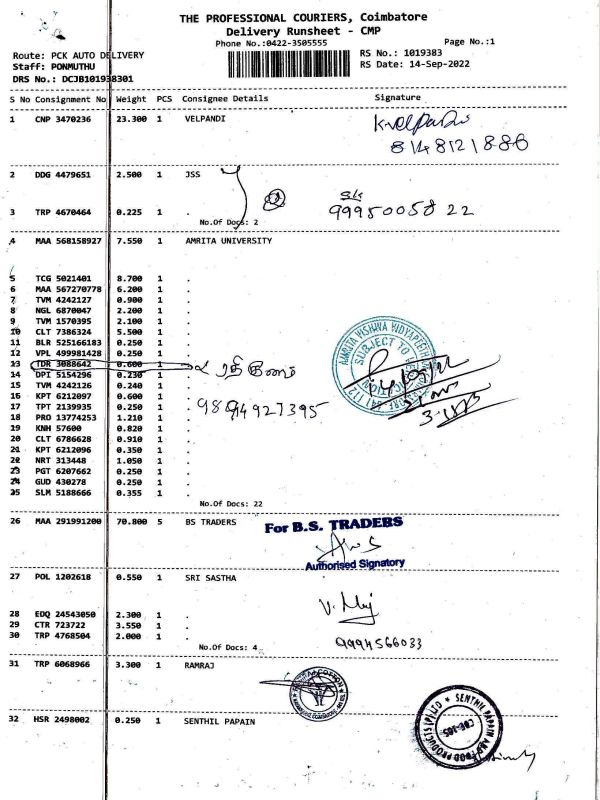 THE PROFESSIONAL COURIERS, Coimbatore
Delivery Runsheet - CMP
Phone No.:0422-3505555
Page No.:1
Route: PCK AUTO DELIVERY
RS No.: 1019383
Staff: PONMUTHU
RS Date: 14-Sep-2022
DRS No.: DCJB101938301
S No Consignment No Weight PCS Consignee Details Signature
1 CNP 3470236 23.300 1 VELPANDI
8148121886
2 DDG 4479651 2.500 1 JSS
9995005822
3 TRP 4670464 0.225 1 .
No.Of Docs: 2
4 MAA 568158927 7.550 1 AMRITA UNIVERSITY
5 TCG 5021401 8.700 1 .
6 MAA 567270778 6.200 1 .
7 TVM 4242127 0.900 1 .
8 NGL 6870047 2.200 1 .
9 TVM 1570395 2.100 1 .
10 CLT 7386324 5.500 1 .
11 BLR 525166183 0.250 1 .
12 VPL 499981428 0.250 1 .
13 TDR 3088642 0.600 1
14 DPI 5154296 0.230 1 .
15 TVM 4242126 0.240 1 .
16 KPT 6212097 0.600 1 .
17 TPT 2139935 0.250 1 .
9894927395
18 PRO 13774253 1.210 1 .
19 KNH 57600 0.820 1 .
20 CLT 6786628 0.910 1 .
21 KPT 6212096 0.350 1 .
22 NRT 313448 1.050 1 .
23 PGT 6207662 0.250 1 .
24 GUD 430278 0.250 1 .
25 SLM 5188666 0.355 1 .
No.Of Docs: 22
AMRITA VISHWA VIDYAPEETHAM
SUBJECT TO VERIFICATION
26 MAA 291991200 70.800 5 BS TRADERS
For B.S. TRADERS
Authorised Signatory
27 POL 1202618 0.550 1 SRI SASTHA
28 EDQ 24543050 2.300 1 .
29 CTR 723722 3.550 1 .
30 TRP 4768504 2.000 1 .
9994566033
No.Of Docs: 4
31 TRP 6068966 3.300 1 RAMRAJ
32 HSR 2498002 0.250 1 SENTHIL PAPAIN
SENTHIL PAPAIN AND FOOD PRODUCTS (P) LTD
CBE-105